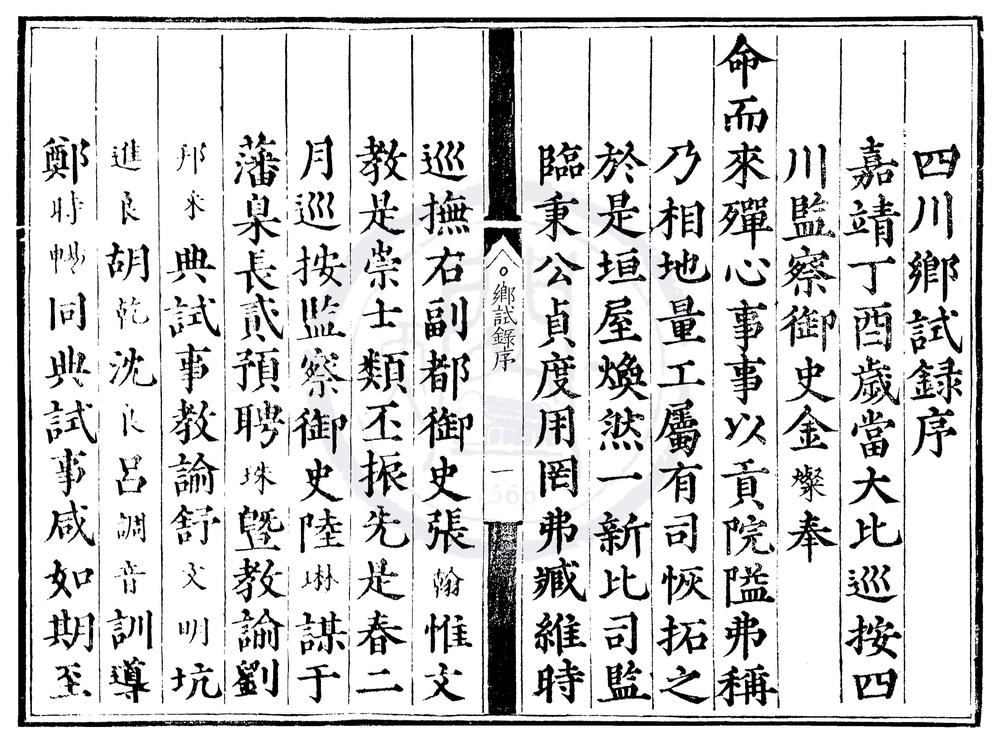 四川鄉試録序
嘉靖丁酉歲當大比巡按四
川監察御史金燦奉
命而來殫心事事以貢院隘弗稱
乃相地量工屬有司恢拓之
於是垣屋煥然一新比司監
臨秉公貞度用罔弗臧維時
鄉試錄序
一
巡撫右副都御史張翰惟文
教是崇士類丕振先是春二
月巡按監察御史陸琳謀于
藩臬長貳預聘珠曁教諭劉
邦來典試事教諭舒文明坑
進良胡乾沈良呂調音訓導
鄭時暢同典試事咸如期至